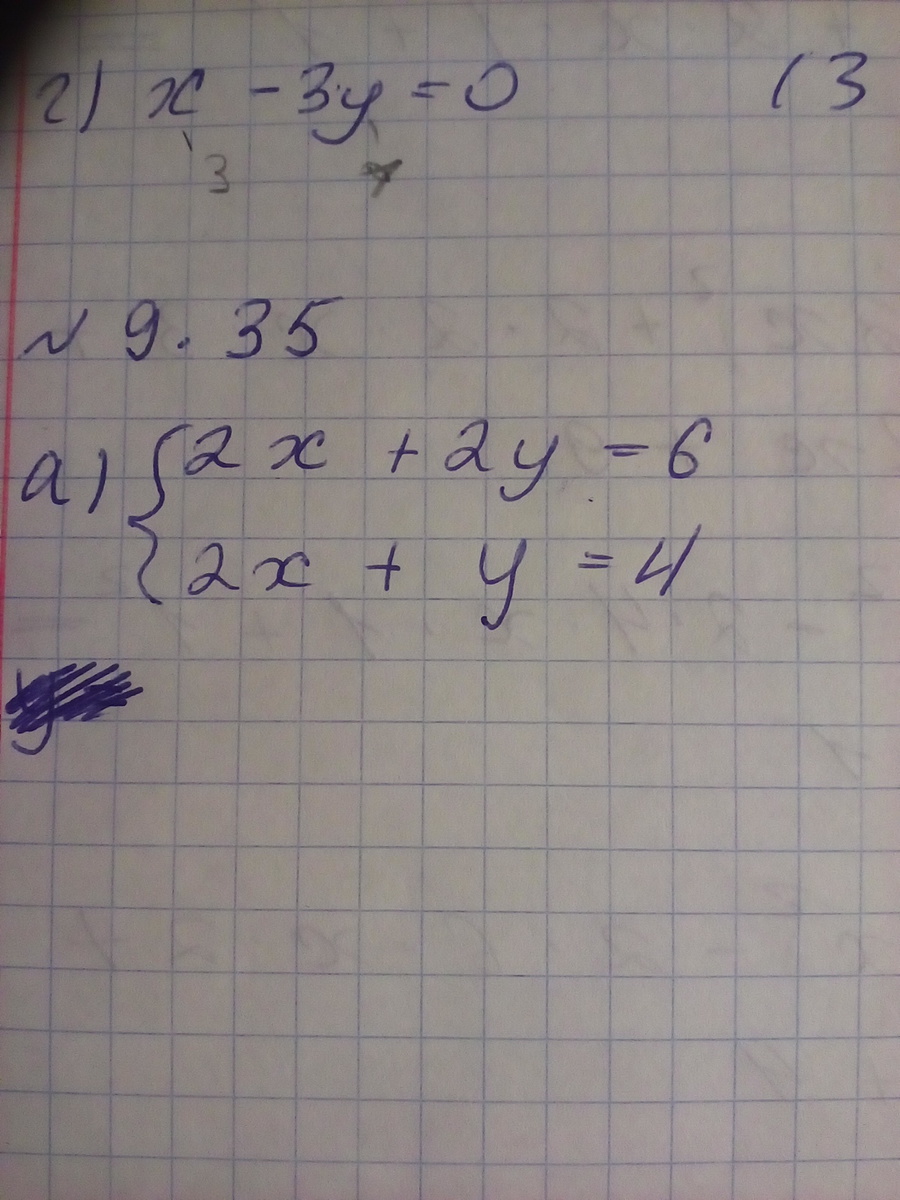 г) x - 3y = 0 (3
3
№ 9.35
а) { 2x + 2y = 6
2x + y = 4